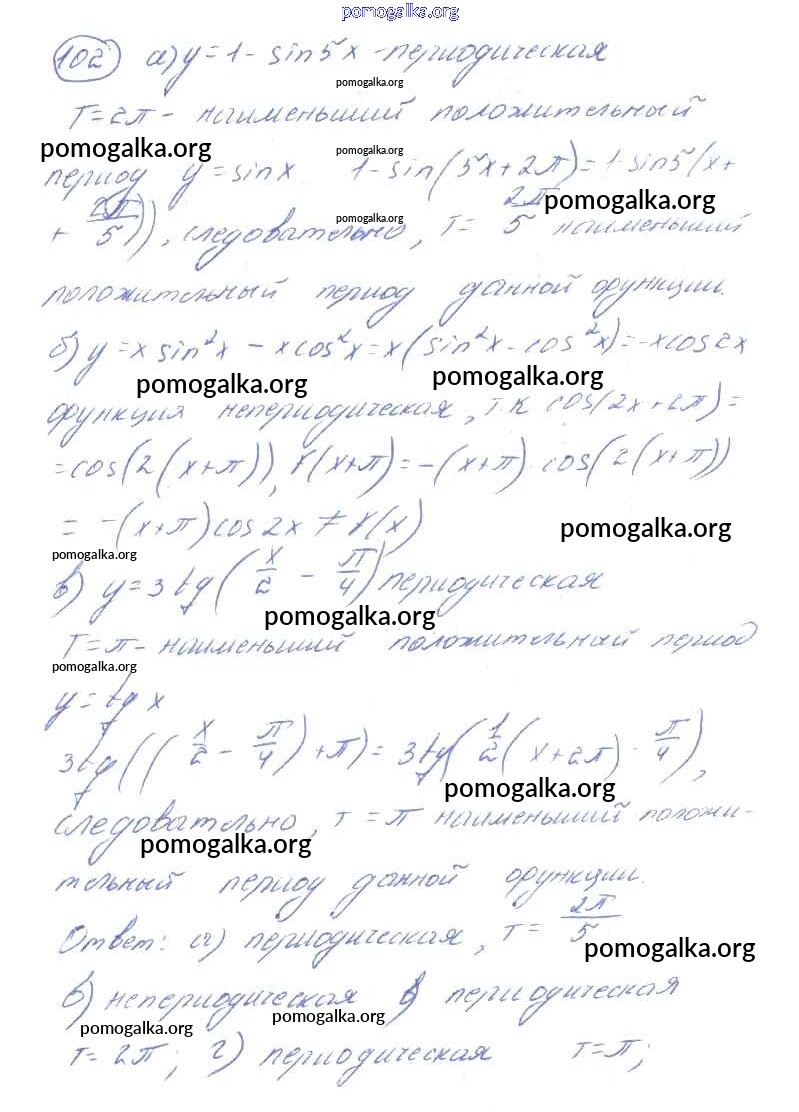 pomogalka.org
102 а) y = 1 - sin5x - периодическая
pomogalka.com
T = 2π - наименьший положительный
pomogalka.org pomogalka.com
период y = sinx 1 - sin(5x + 2π) = 1 - sin5(x +
pomogalka.org
+ 2π/5)), следовательно, T = 2π/5 наименьший
pomogalka.com
положительный период данной функции.
б) y = x sin²x - x cos²x = x(sin²x - cos²x) = -x cos2x
pomogalka.org pomogalka.org
функция непериодическая, т.к cos(2x + 2π) =
= cos(2(x + π)), f(x + π) = -(x + π) cos(2(x + π))
= -(x + π) cos2x ≠ f(x)
pomogalka.org
pomogalka.org
в) y = 3 tg(x/2 - π/4) периодическая
pomogalka.org
T = π - наименьший положительный период
pomogalka.org
y = tg x
3tg((x/2 - π/4) + π) = 3tg(1/2(x + 2π) - π/4),
pomogalka.org
следовательно, T = π наименьший положи-
pomogalka.org
тельный период данной функции.
Ответ: а) периодическая, T = 2π/5
pomogalka.org
б) непериодическая в) периодическая
pomogalka.org pomogalka.org
T = 2π; г) периодическая T = π;